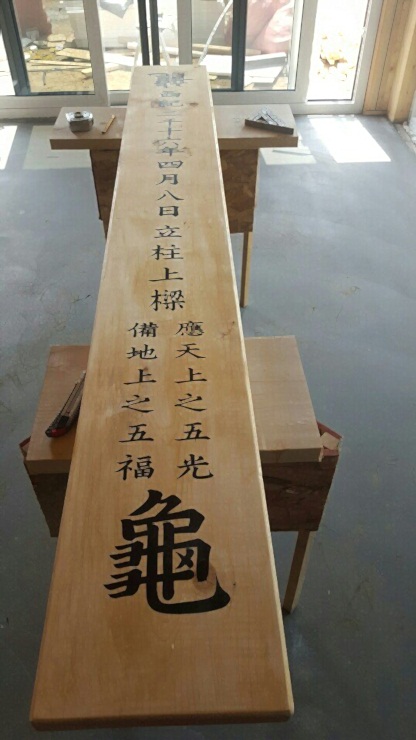 龍
西紀二千十六年四月八日立柱上樑
應天上之五光
備地上之五福
龜